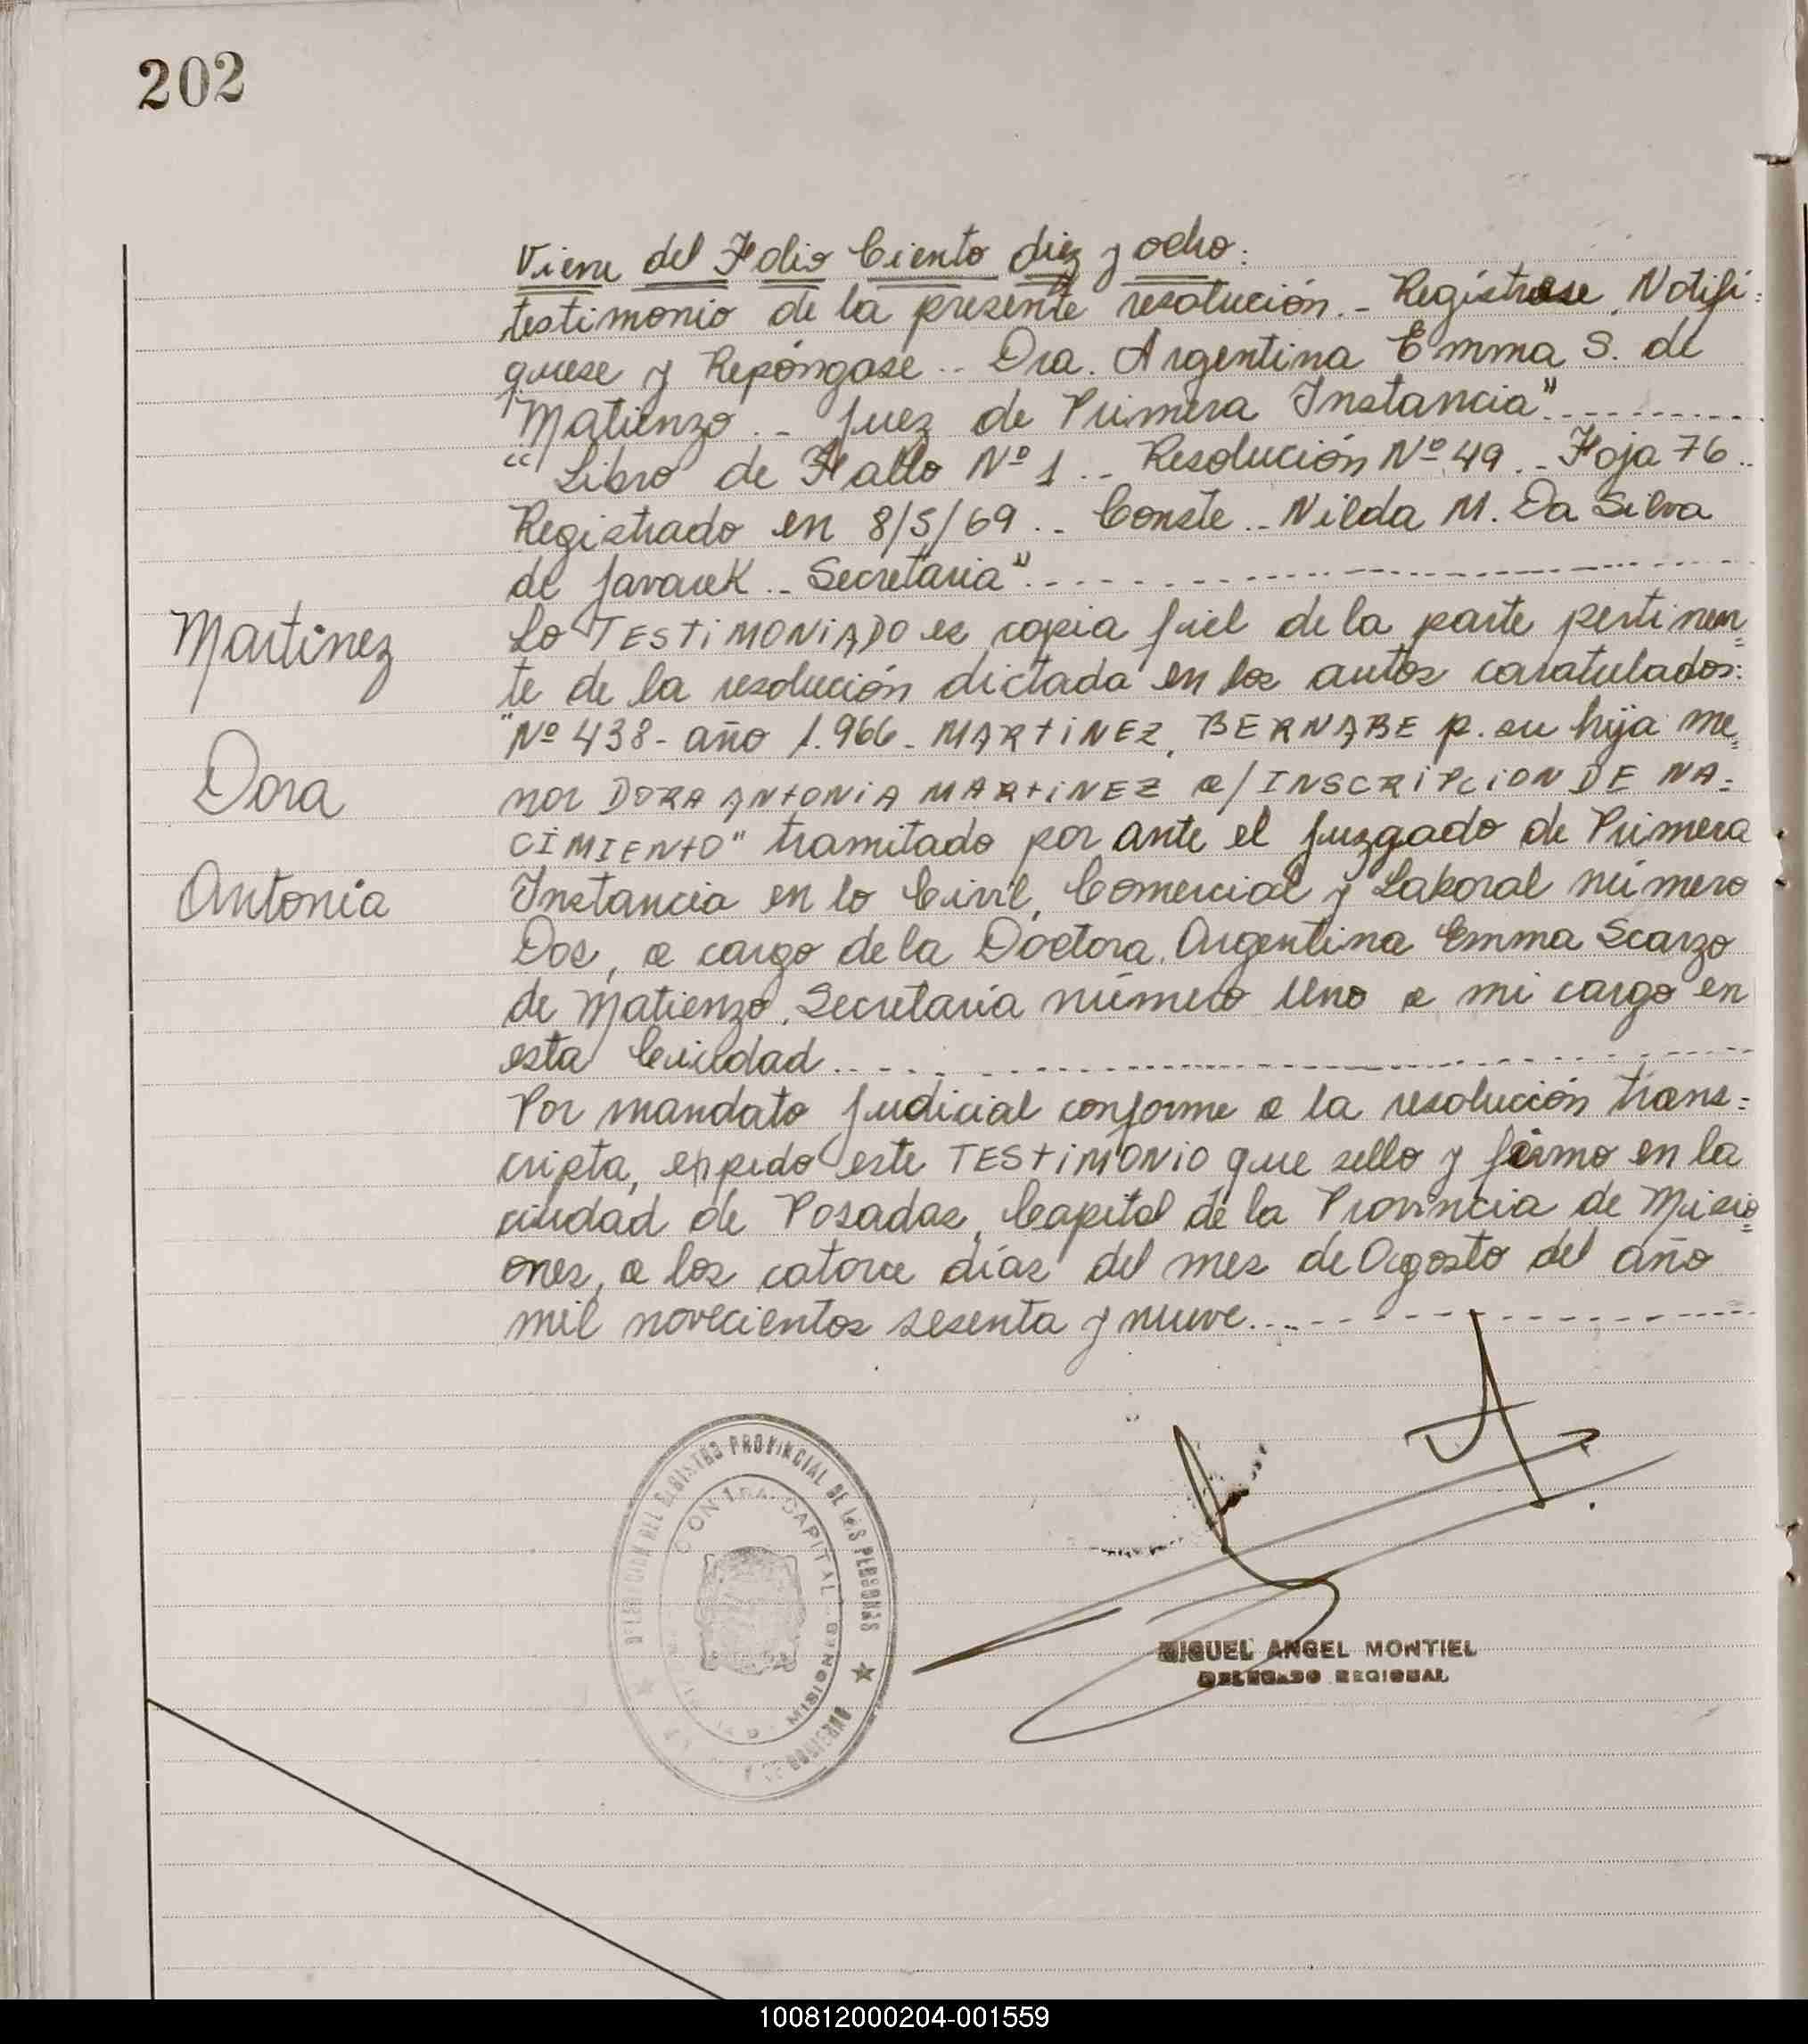 202
Viene del Folio Ciento diez y ocho:
testimonio de la presente resolución.- Regístrese, Notifí=
quese y Repóngase.- Dra. Argentina Emma S. de
Matienzo.- Juez de Primera Instancia".-----------
"Libro de Fallo Nº 1.- Resolución Nº 49.- Foja 76.-
Registrado en 8/5/69.- Conste.- Nilda M. Da Silva
de Javarek.- Secretaria".-----------
Martinez
Lo TESTIMONIADO es copia fiel de la parte pertinen=
te de la resolución dictada en los autos caratulados:
"Nº 438- año 1.966- MARTINEZ, BERNABE p. su hija me=
Dora
nor DORA ANTONIA MARTINEZ s/INSCRIPCION DE NA=
CIMIENTO" tramitado por ante el Juzgado de Primera
Antonia
Instancia en lo Civil, Comercial y Laboral número
Dos, a cargo de la Doctora Argentina Emma Scarzo
de Matienzo, Secretaría número Uno a mi cargo en
esta Ciudad.-----------
Por mandato Judicial conforme a la resolución trans=
cripta, expido este TESTIMONIO que sello y firmo en la
ciudad de Posadas, Capital de la Provincia de Misio=
ones, a los catorce días del mes de Agosto del año
mil novecientos sesenta y nueve.-----------
DELEGACION DEL REGISTRO PROVINCIAL DE LAS PERSONAS
CAPITAL
MISIONES
MIGUEL ANGEL MONTIEL
DELEGADO REGIONAL
100812000204-001559